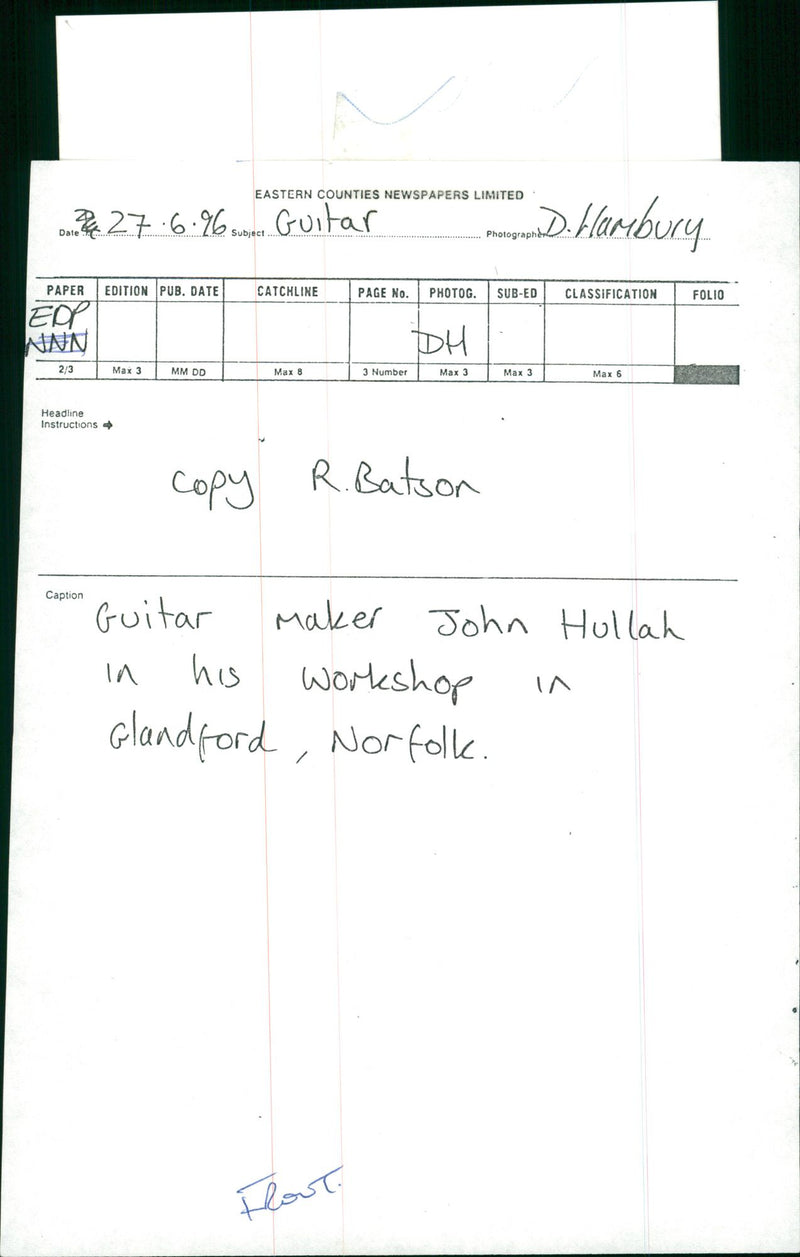 EASTERN COUNTIES NEWSPAPERS LIMITED
Date 27.6.96 Subject Guitar Photographer D. Hambury
PAPER EDITION PUB. DATE CATCHLINE PAGE No. PHOTOG. SUB-ED CLASSIFICATION FOLIO
EDP
NNN DH
2/3 Max 3 MM DD Max 8 3 Number Max 3 Max 3 Max 6
Headline
Instructions →
Copy R. Batson
Caption
Guitar Maker John Hullah
in his workshop in
Glandford, Norfolk.
Front.